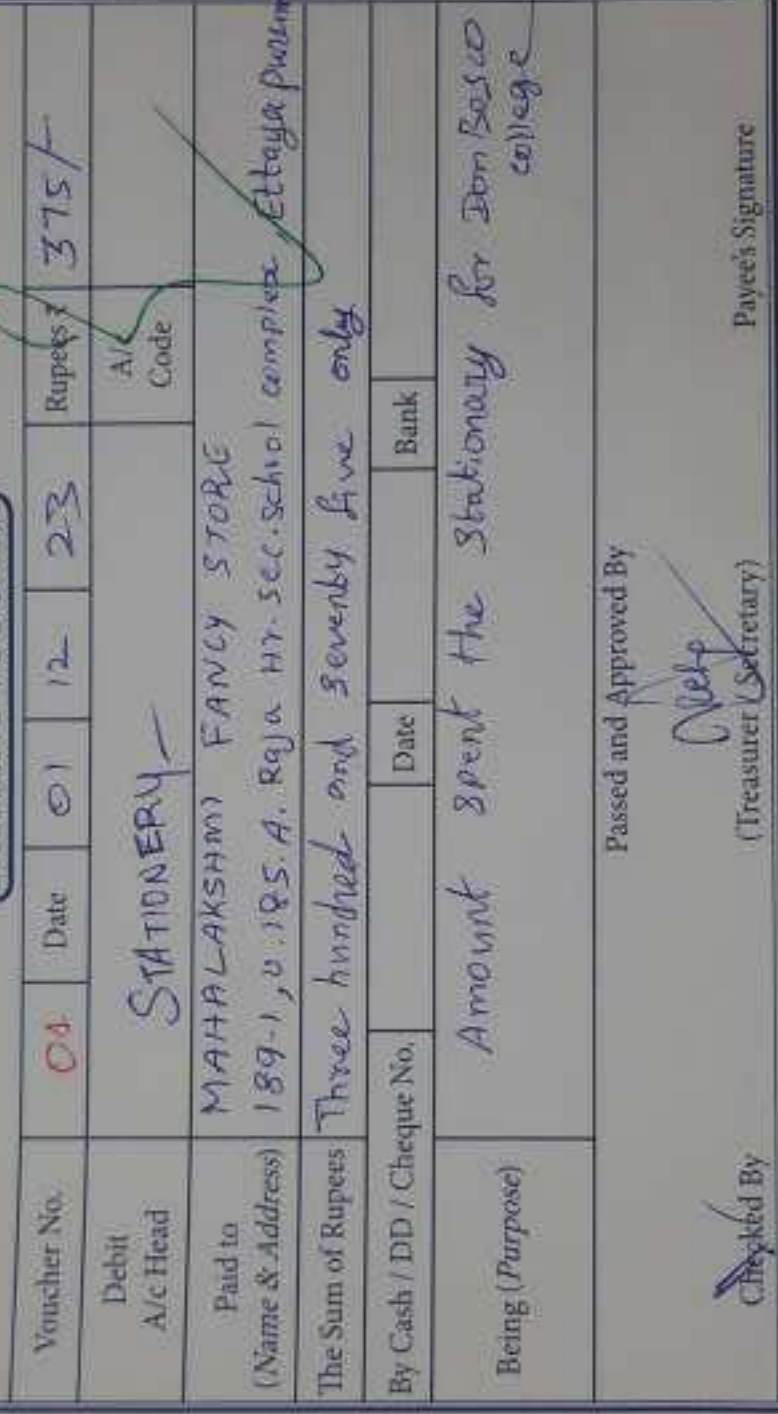 Voucher No. 01 Date 01 12 23 Rupees ₹ 375/-
Debit
A/c Head
STATIONERY
A/c
Code
Paid to
(Name & Address)
MAHALAKSHMI FANCY STORE
189-1, D.185.A. Raja Hr. Sec. School complex, Ettayapuram
The Sum of Rupees Three hundred and Seventy five only
By Cash / DD / Cheque No. Date Bank
Being (Purpose)
Amount spent the Stationary for Don Bosco
college
Passed and Approved By
Checked By
(Treasurer / Secretary)
Payee's Signature